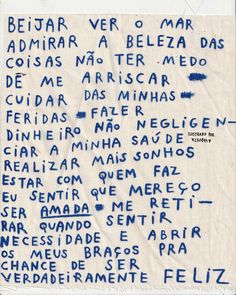 BEIJAR VER O MAR
ADMIRAR A BELEZA DAS
COISAS NÃO TER MEDO
DE ME ARRISCAR
CUIDAR DAS MINHAS
FERIDAS FAZER
DINHEIRO NÃO NEGLIGEN-
CIAR A MINHA SAÚDE
REALIZAR MAIS SONHOS
ESTAR COM QUEM FAZ
EU SENTIR QUE MEREÇO
SER AMADA ME RETI-
RAR QUANDO SENTIR
NECESSIDADE E ABRIR
OS MEUS BRAÇOS PRA
CHANCE DE SER
VERDADEIRAMENTE FELIZ